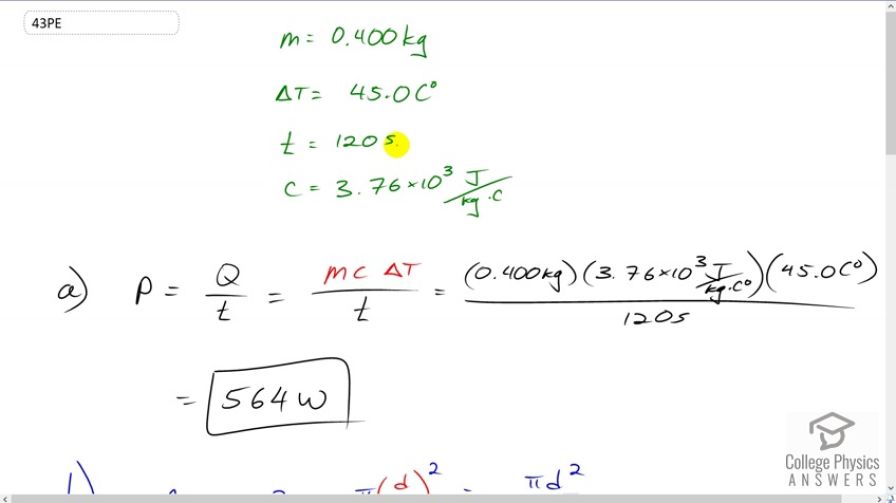 43PE
m = 0.400 kg
ΔT = 45.0 C°
t = 120 s
c = 3.76 × 10³ J/kg·C
a) P = Q/t = mc ΔT/t = (0.400 kg)(3.76 × 10³ J/kg·C°)(45.0 C°)/120 s
= 564 W
π(d)² = πd²
College Physics
ANSWERS